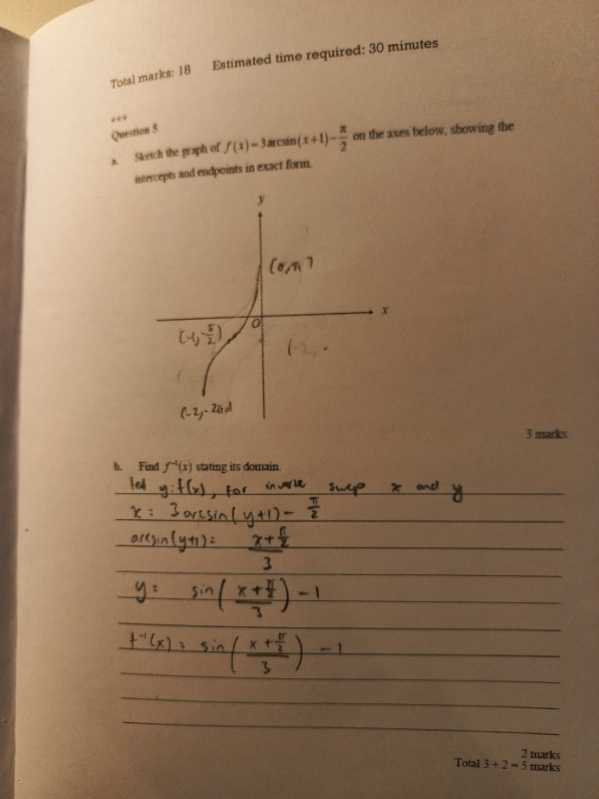 Total marks: 18 Estimated time required: 30 minutes
***
Question 5
a. Sketch the graph of f(x) = 3arcsin(x+1) − π/2 on the axes below, showing the
intercepts and endpoints in exact form.
y
(0, π)
x
O
(-1, -π/2)
(-2,
(-2, -2π)
3 marks
b. Find f⁻¹(x) stating its domain.
let y = f(x), for inverse swap x and y
x = 3 arcsin(y+1) − π/2
arcsin(y+1) = (x + π/2)/3
y = sin((x + π/2)/3) − 1
f⁻¹(x) = sin((x + π/2)/3) − 1
2 marks
Total 3 + 2 = 5 marks